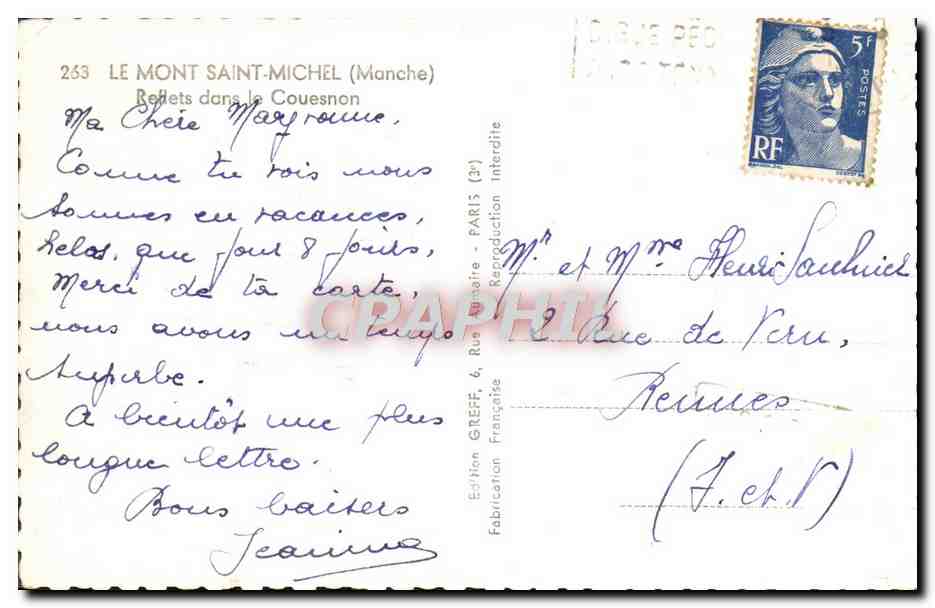 263 LE MONT SAINT-MICHEL (Manche)
Reflets dans le Couesnon
Ma Chère
Comme tu vois nous
sommes en vacances,
helas, que pour 8 jours,
Merci de ta carte,
nous avons un temps
superbe.
A bientôt une plus
longue lettre.
Bons baisers
Jeanine
Edition GREFF, 6, Rue - PARIS (3e)
Fabrication Française Reproduction Interdite
5F
POSTES
RF
Mr et Mme Henri Saulnier
2 Rue de Vern,
Rennes
(I. et V)
CRAPHIL